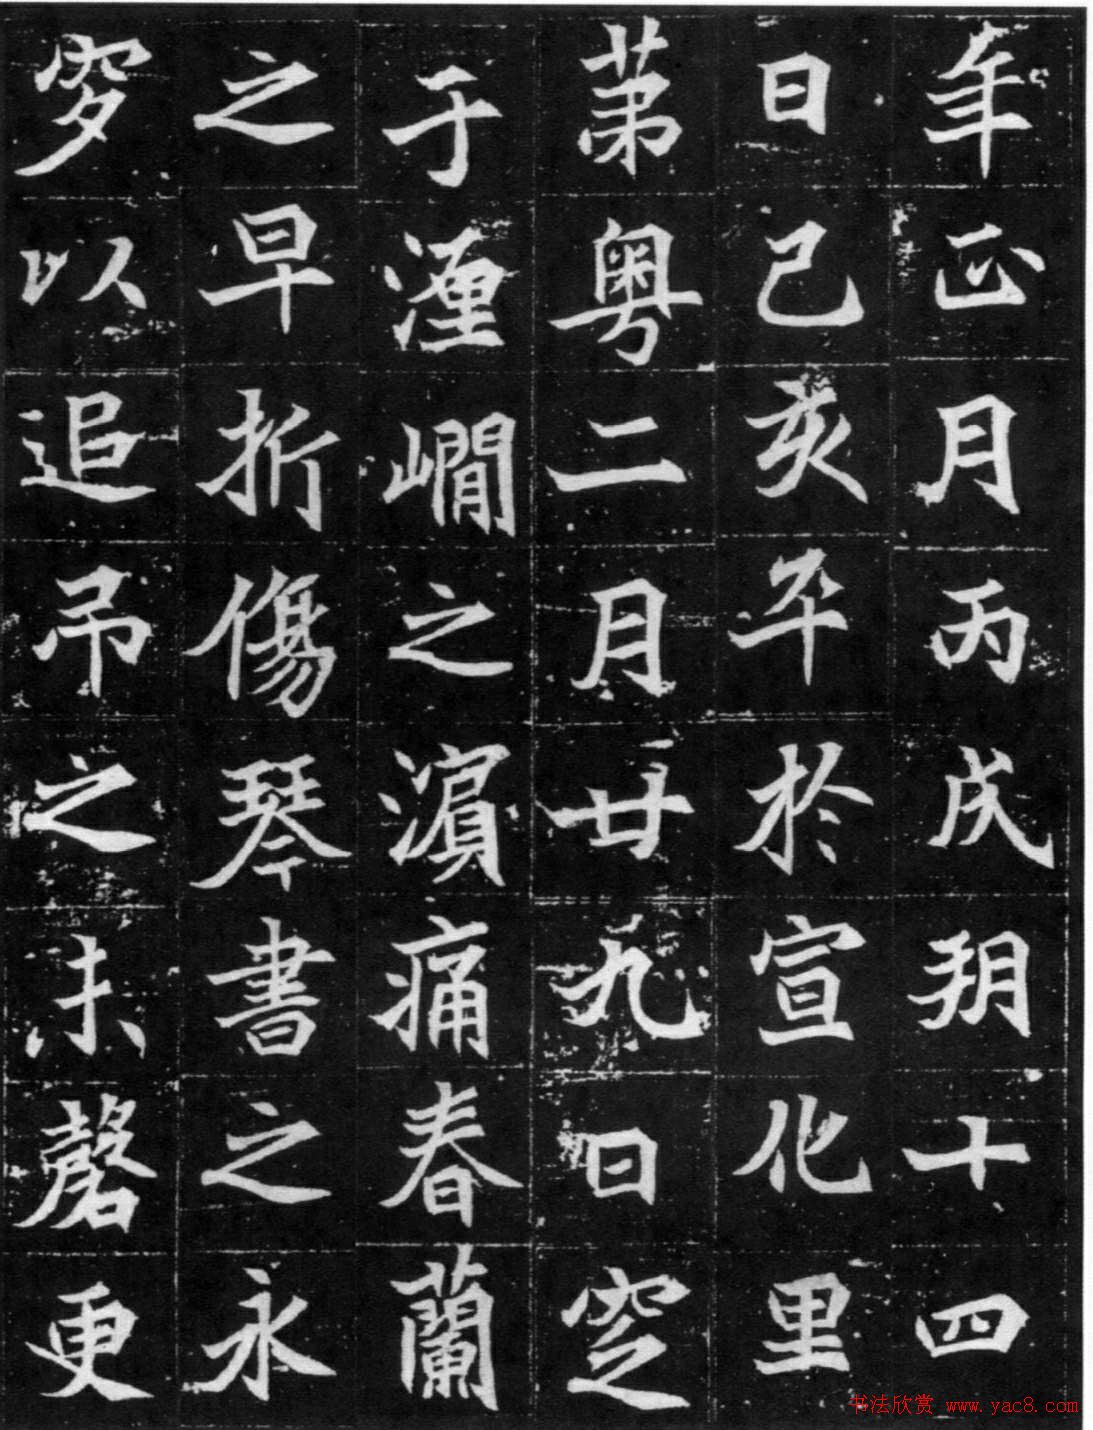 年正月丙戌朔十四
日己亥卒於宣化里
苐粤二月廿九日窆
于湹㵎之濵痛春蘭
之早折傷琴書之永
穸以追吊之未磬更
书法欣赏 www.yac8.com